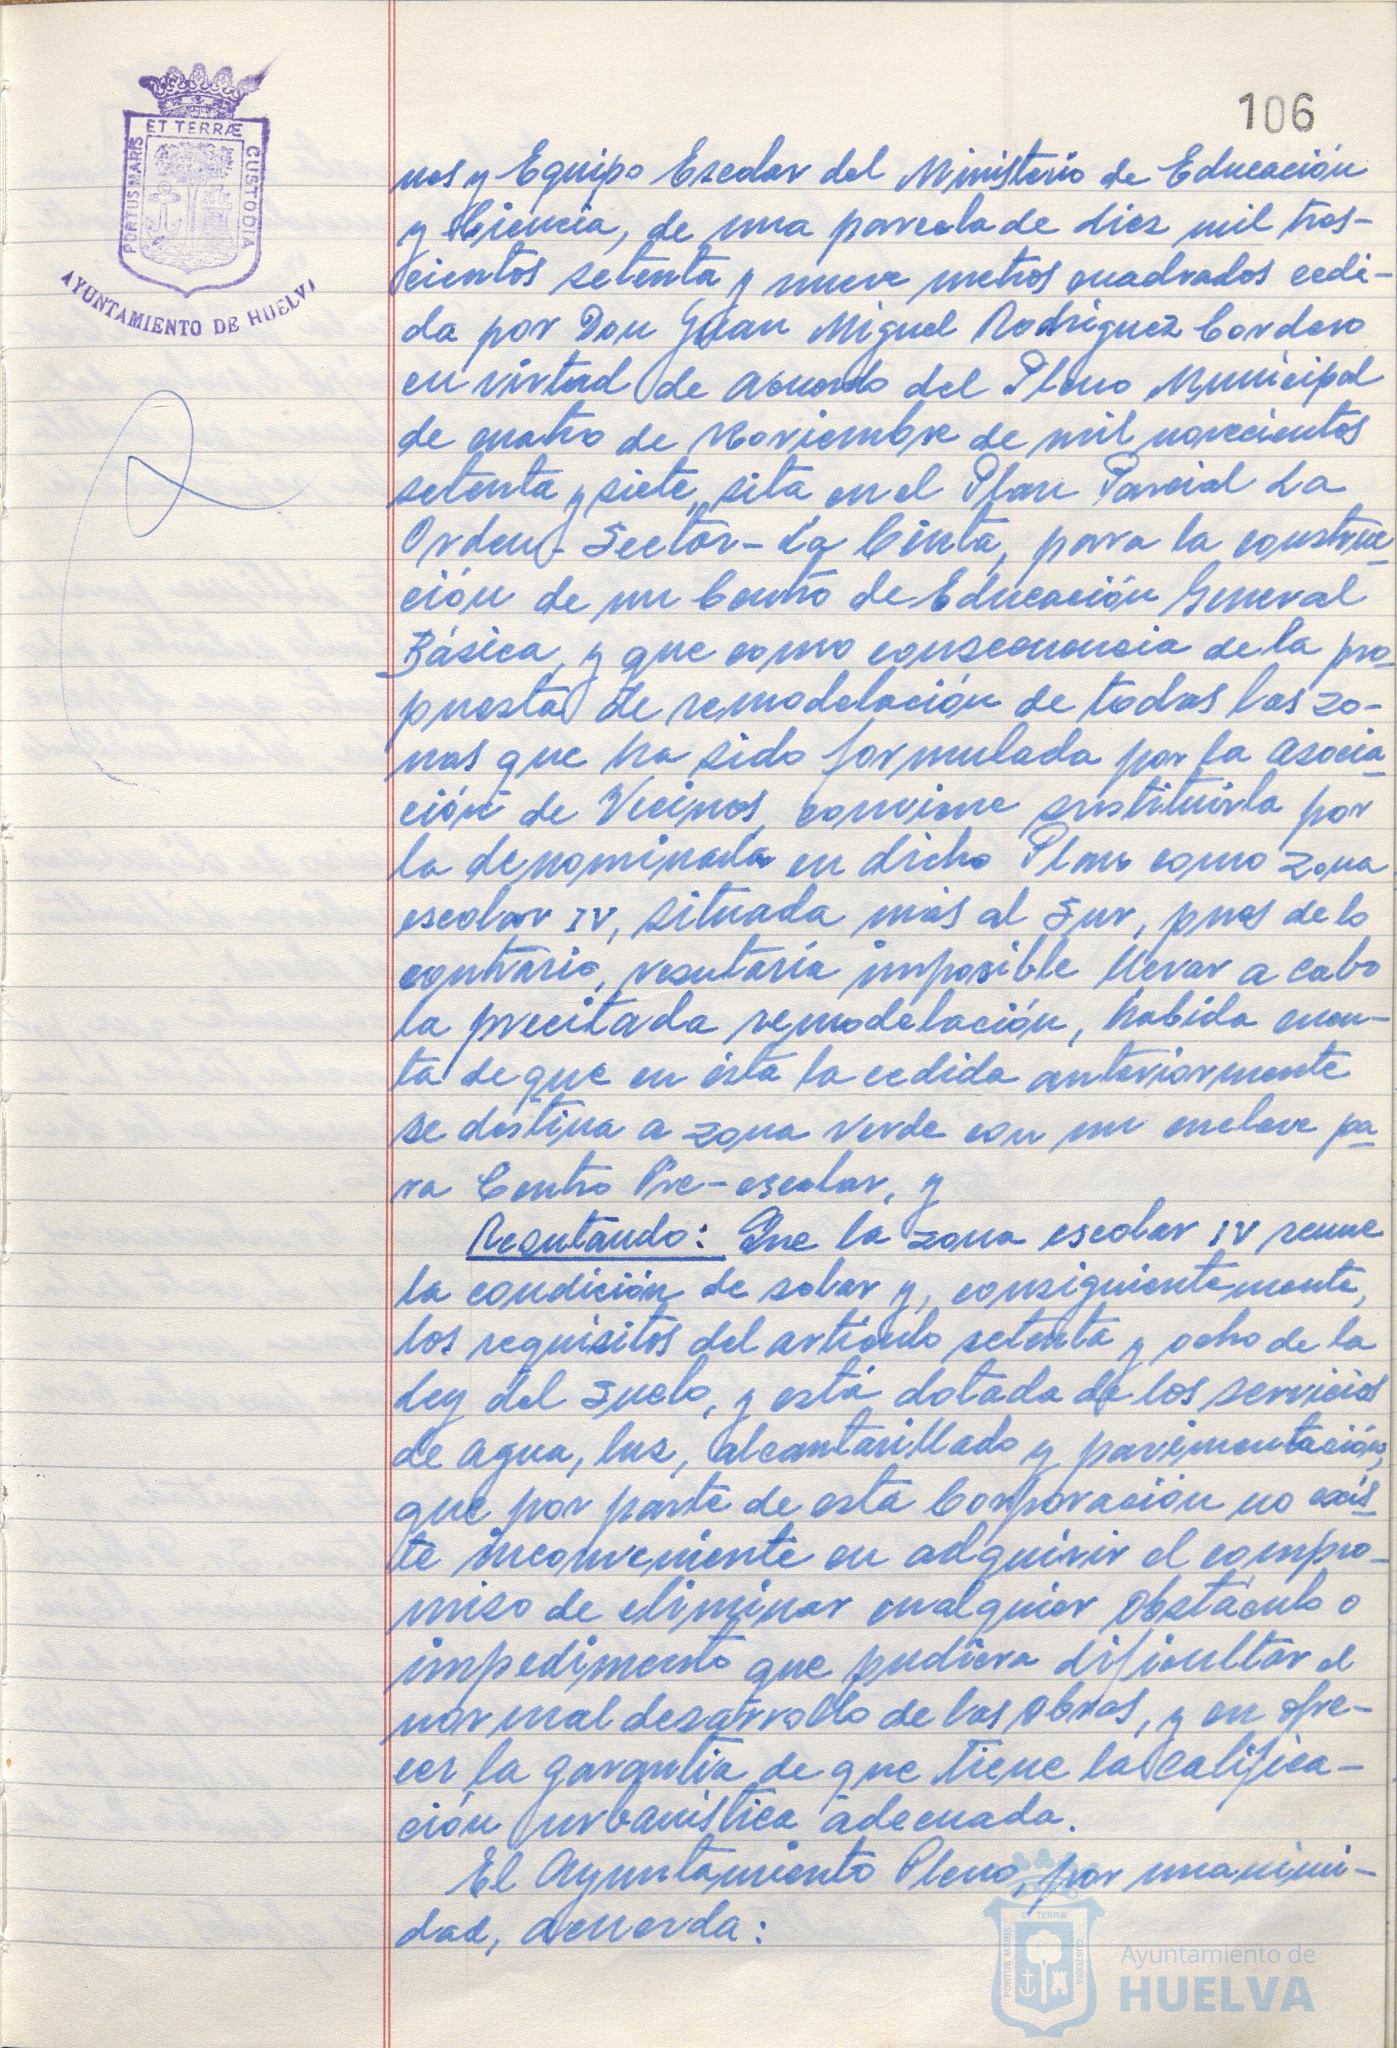 106
ET TERRÆ
PORTUS MARIS
CUSTODIA
AYUNTAMIENTO DE HUELVA
nes y Equipo Escolar del Ministerio de Educación
y Ciencia, de una parcela de diez mil tres-
cientos setenta y nueve metros cuadrados cedi-
da por Don Juan Miguel Rodriguez Cordero
en virtud de acuerdo del Pleno Municipal
de cuatro de Noviembre de mil novecientos
setenta y siete, sita en el Plan Parcial La
Orden-Sector-La Cinta, para la construc-
ción de un Centro de Educación General
Básica, y que como consecuencia de la pro-
puesta de remodelación de todas las zo-
nas que ha sido formulada por la asocia-
ción de Vecinos, conviene sustituirla por
la denominada en dicho Plan como zona
escolar IV, situada más al Sur, pues de lo
contrario, resutaría imposible llevar a cabo
la precitada remodelación, habida cuen-
ta de que en ésta la cedida anteriormente
se destina a zona verde con un enclave pa-
ra Centro Pre-escolar, y
Resutando: Que la zona escolar IV reune
la condición de solar y, consiguientemente,
los requisitos del artículo setenta y ocho de la
Ley del Suelo, y está dotada de los servicios
de agua, luz, alcantarillado y pavimentación,
que por parte de esta Corporación no exis-
te inconveniente en adquirir el compro-
miso de eliminar cualquier obstáculo o
impedimento que pudiera dificultar el
normal desarrollo de las obras, y en ofre-
cer la garantía de que tiene la califica-
ción urbanística adecuada.
El Ayuntamiento Pleno, por unanimi-
dad, acuerda:
ET TERRÆ
PORTUS MARIS
CUSTODIA
Ayuntamiento de
HUELVA